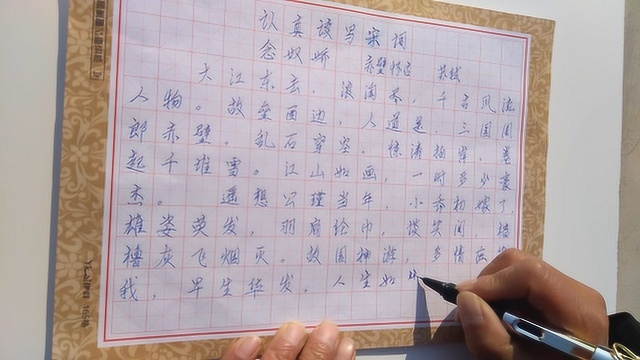 认真读写宋词
念奴娇 赤壁怀古 苏轼
大江东去,浪淘尽,千古风流
人物。故垒西边,人道是,三国周
郎赤壁。乱石穿空,惊涛拍岸,卷
起千堆雪。江山如画,一时多少豪
杰。 遥想公瑾当年,小乔初嫁了,
雄姿英发,羽扇纶巾,谈笑间,樯
橹灰飞烟灭。故国神游,多情应笑
我,早生华发,人生如